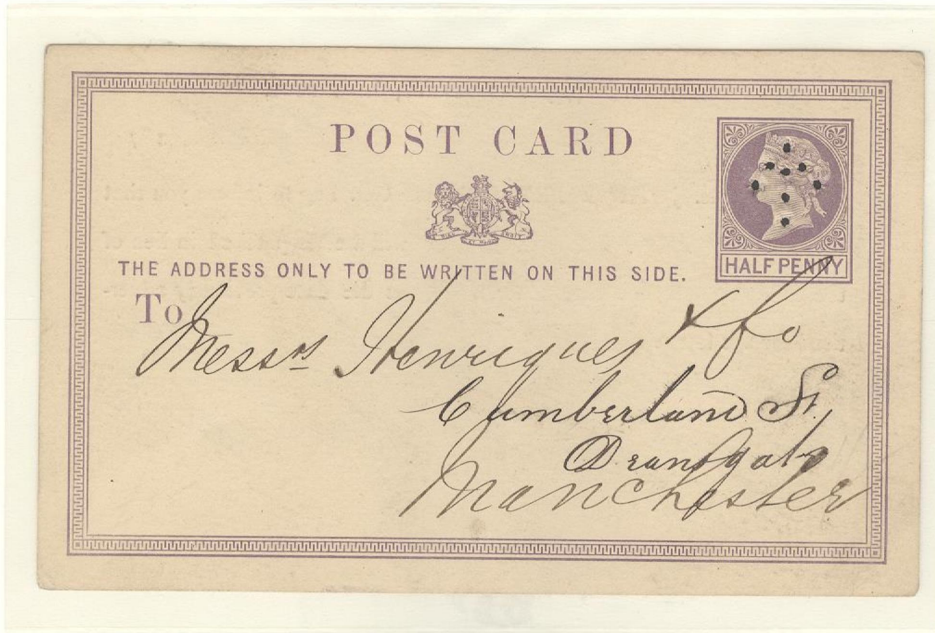 POST CARD
HALF PENNY
THE ADDRESS ONLY TO BE WRITTEN ON THIS SIDE.
To
Messrs Henriques & Co
Cumberland St.
Deansgate
Manchester